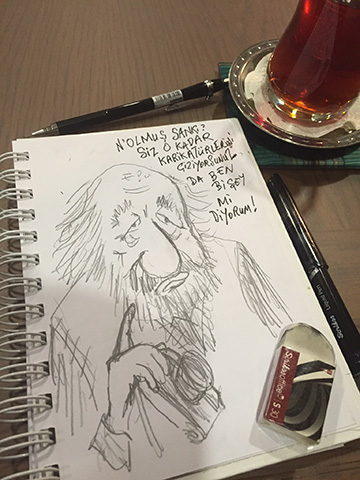 N'OLMUŞ SANKİ?
SİZ O KADAR
KARİKATÜRLERİMİ
ÇİZİYORSUNUZ
DA BEN
BİŞEY
Mİ
DİYORUM!